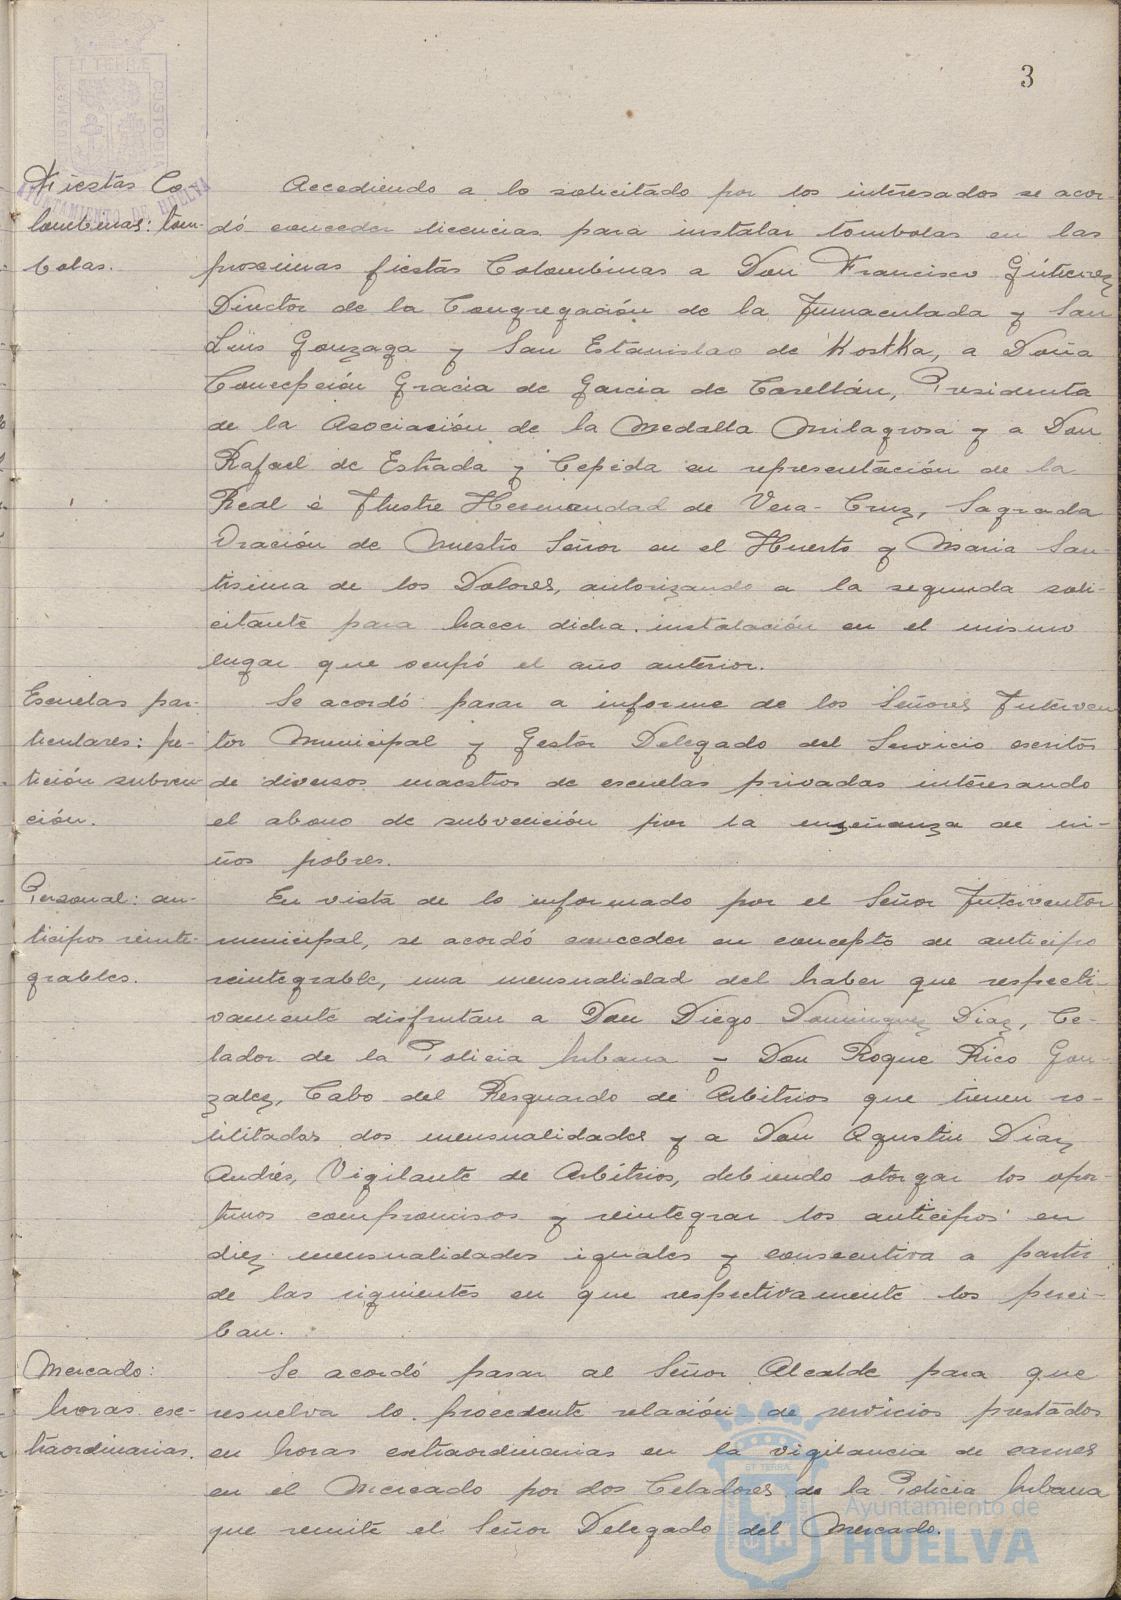 3
Fiestas Co
lombinas: tóm-
bolas.
Accediendo a lo solicitado por los interesados se acor-
dó conceder licencias para instalar tombolas en las
proximas fiestas Colombinas a Don Francisco Gútierrez
Director de la Congregación de la Inmaculada y San
Luis Gonzaga y San Estanislao de Kostka, a Doña
Concepción Gracia de Garcia de Castellán, Presidenta
de la Asociación de la Medalla Milagrosa y a Don
Rafael de Estrada y Cepeda en representación de la
Real é Ilustre Hermandad de Vera-Cruz, Sagrada
Oración de Nuestro Señor en el Huerto y Maria San-
tisima de los Dolores, autorizando a la segunda soli-
citante para hacer dicha instalación en el mismo
lugar que ocupó el año anterior.
Escuelas par-
ticulares: pe-
tición subven-
ción.
Se acordó pasar a informe de los Señores Interven
tor Municipal y Gestor Delegado del Servicio escritos
de diversos maestros de escuelas privadas interesando
el abono de subveición por la enseñanza de ni-
ños pobres.
Personal: an-
ticipos reinte-
grables.
En vista de lo informado por el Señor Interventor
municipal, se acordó conceder en concepto de anticipo
reintegrable, una mensualidad del haber que respecti-
vamente disfrutan a Don Diego Dominguez Diaz, Ce-
lador de la Policia Urbana y Don Roque Rico Gon-
zalez, Cabo del Resguardo de Arbitrios que tienen so-
licitadas dos mensualidades y a Don Agustin Diaz
Andrés, Vigilante de Arbitrios, debiendo otorgar los opor-
tunos compromisos y reintegrar los anticipos en
diez mensualidades iguales y consecutiva a partir
de las siguientes en que respectivamente los perci-
ban.
Mercado:
horas ex-
traordinarias.
Se acordó pasar al Señor Alcalde para que
resuelva lo procedente relación de servicios prestados
en horas extraordinarias en la vigilancia de carnes
en el Mercado por dos Celadores de la Policia Urbana
que remite el Señor Delegado del Mercado.
ET TERRÆ
CUSTODIA
AYUNTAMIENTO DE HUELVA
Ayuntamiento de
HUELVA